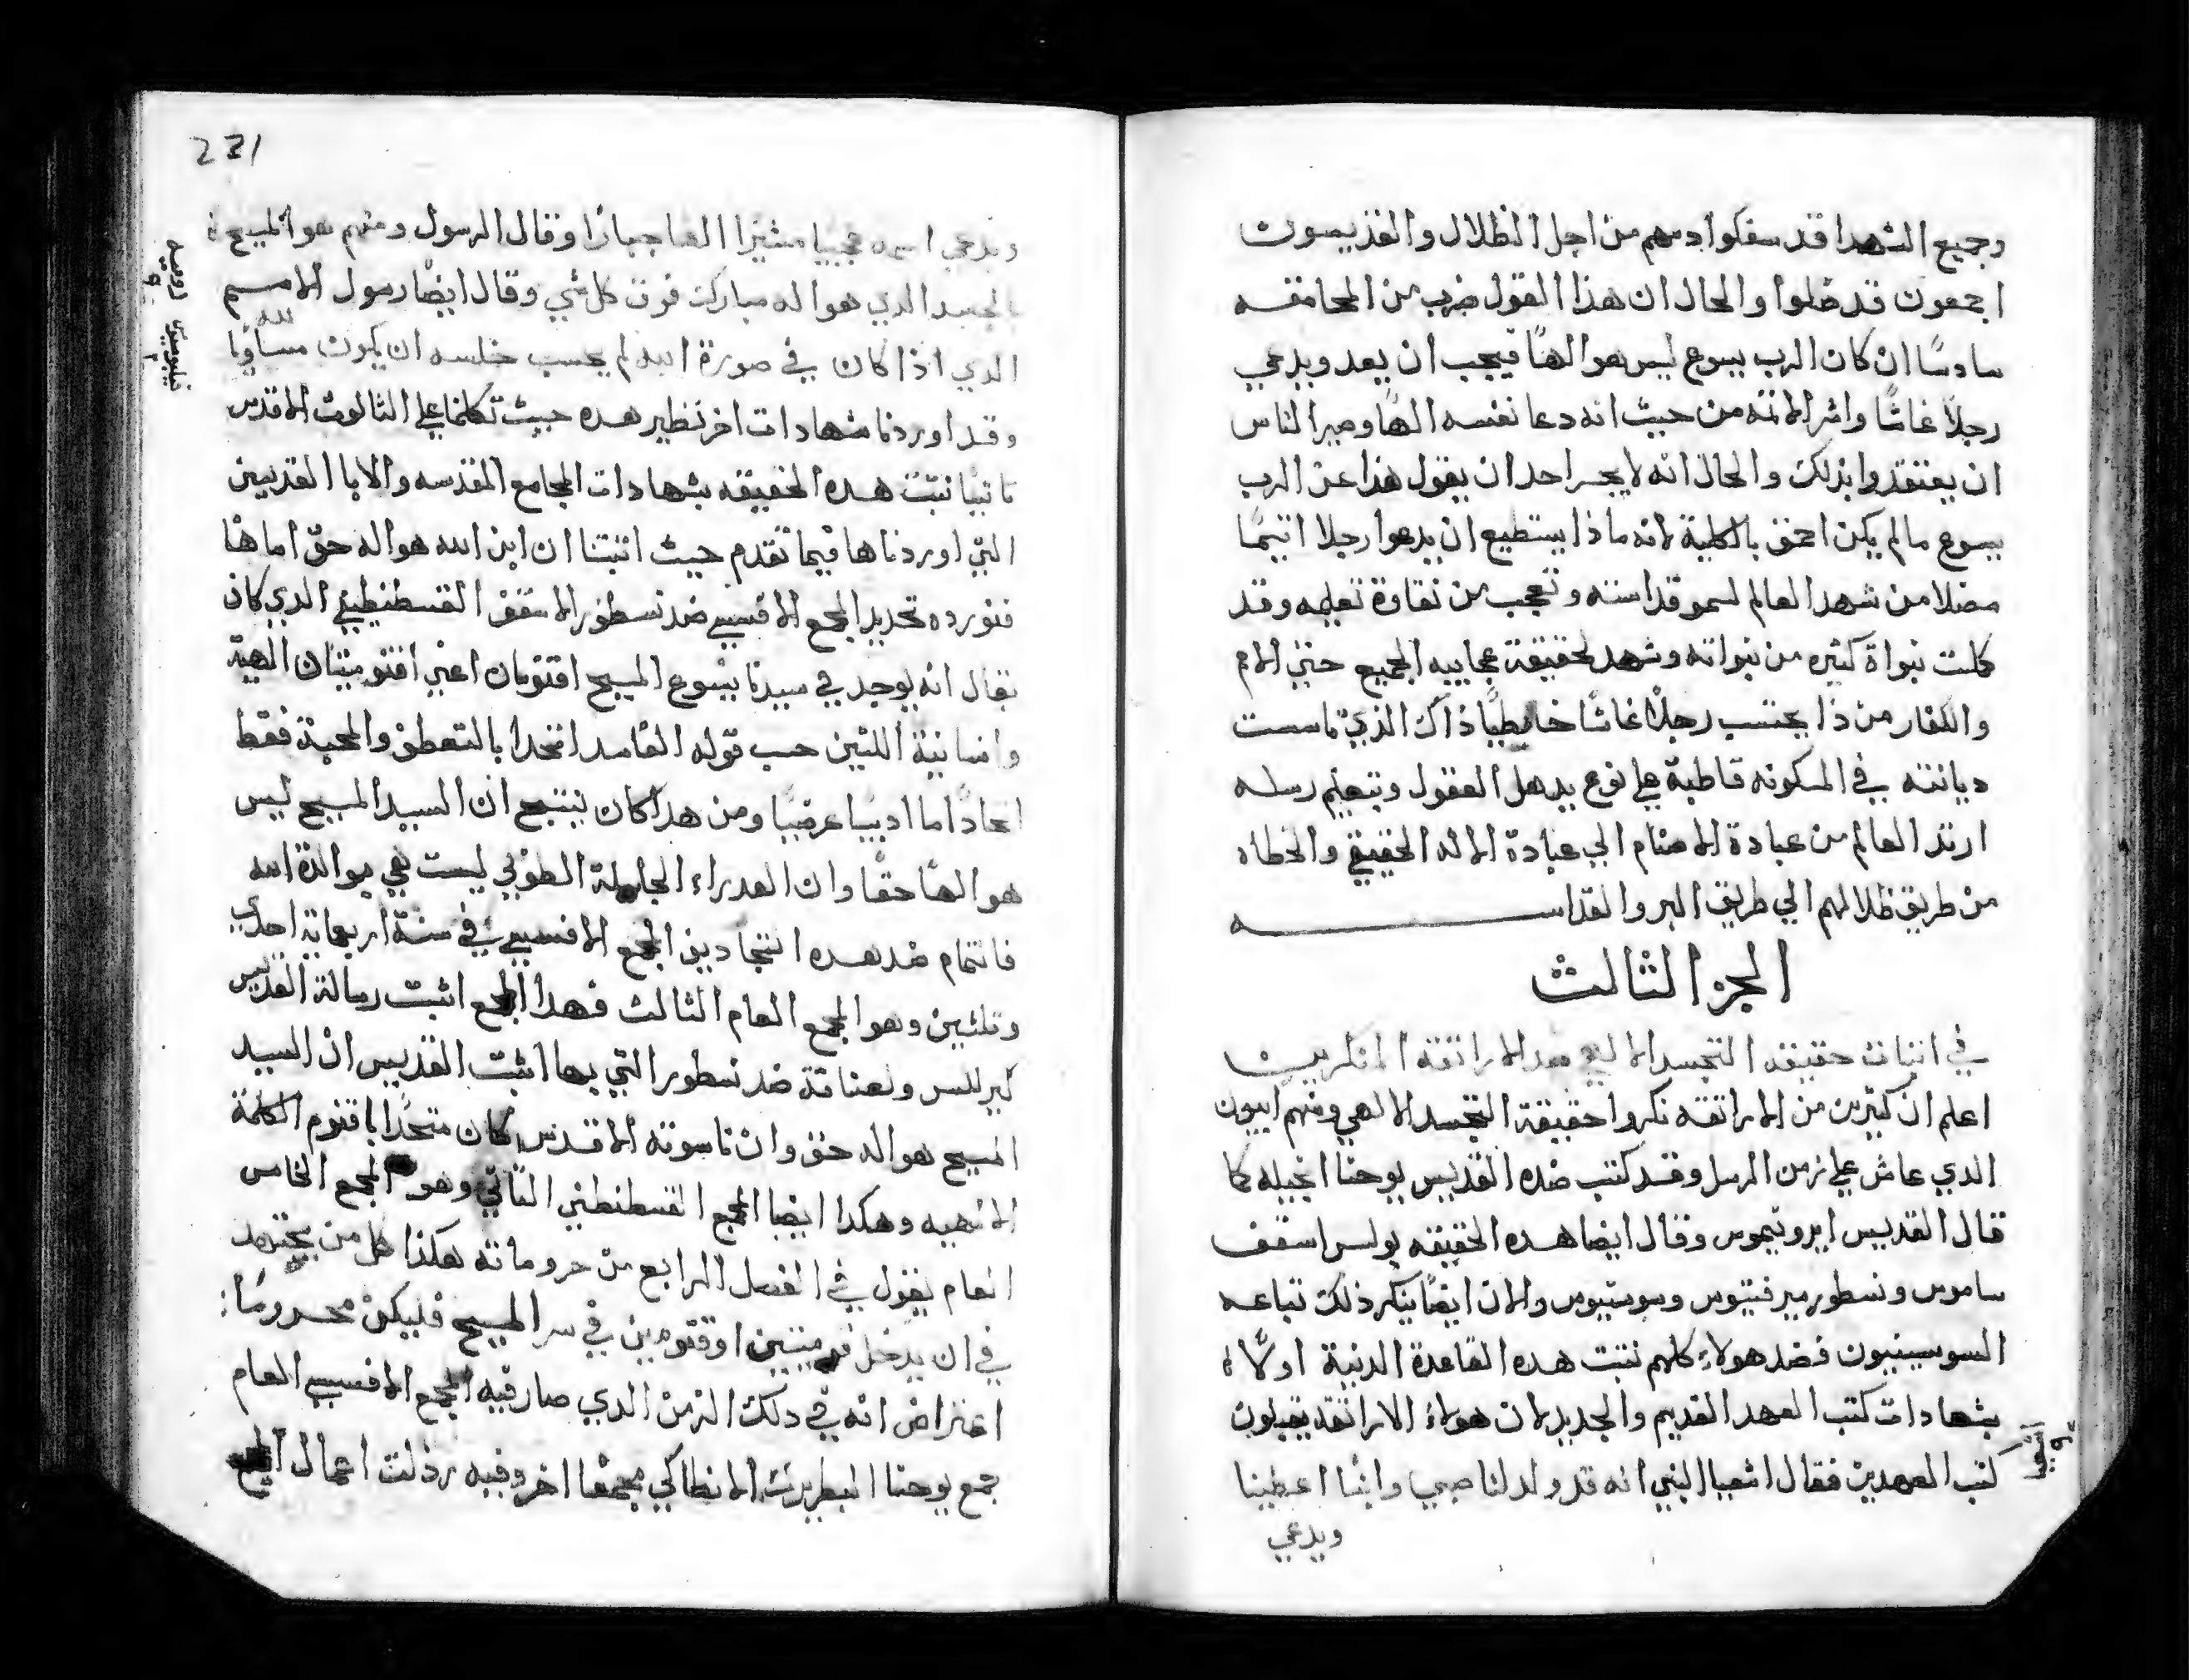 وجميع الشهدا قد سفكوا دمهم من اجل الظلال والقديسون
اجمعون قد ضلوا والحال ان هذا القول ضرب من المحامقه
سادسًا ان كان الرب يسوع ليس هو الهًا فيجب ان يعد ويدعي
رجلاً غاشًا واشر الائمه من حيث انه دعا نفسه الهًا وصير الناس
ان يعتقدوا بذلك والحال انه لا يجسر احد ان يقول هذا عن الرب
يسوع مالم يكن احمق بالكلية لانه ماذا يستطيع ان يدعوا رجلا اثيمًا
مضلا من شهد العالم لسمو قداسته وتعجب من نقاوة تعليمه وقد
كملت نبواة كثيره من نبواته وشهد لحقيقة عجايبه الجميع حتي الامم
والكفار من ذا يحتسب رجلاً غاشًا خاطيًا ذاك الذي تاسست
ديانته في المسكونه قاطبة علي نوع يدهل العقول وبتعليم رسله
ارتد العالم من عبادة الاصنام الي عبادة الاله الحقيقي والخطاه
من طريق ظلالهم الي طريق البر والقداسه
الجزء الثالث
في اثبات حقيقه التجسد الالهي ضد الاراتقه المنكرين
اعلم ان كثيرين من الاراتقه نكروا حقيقة التجسد الالهي ومنهم ابيون
الدي عاش علي زمن الرسل وقد كتب ضده القديس يوحنا انجيله كما
قال القديس ايرونيموس وقال ايضا هده الحقيقه بولس اسقف
ساموس ونسطور وبوستيوس والان ايضًا ينكر ذلك تباعه
السوسينيون فضد هولاء كلهم نثبت هده القاعدة الدنية اولاً
بشهادات كتب العهد القديم والجديد لان هولاء الاراتقه يقبلون
كتب العهدين فقال اشعيا النبي انه قد ولد لنا صبي وابنًا اعطينا
ويدعي
اشعيا
٩
231
ويدعي اسمه عجيبا مشيرًا الها جبارًا وقال الرسول ومنهم هو المسيح
بالجسد الدي هو اله مبارك فوق كل شي وقال ايضًا رسول الامم
الدي اذا كان في صورة الله لم يحسب خلسه ان يكون مساويا
لله
وقد اوردنا شهادات اخر نظير هده حيث تكلمنا علي الثالوث الاقدس
ثانيًا نثبت هده الحقيقه بشهادات المجامع المقدسه والابا القديسين
التي اوردناها فيما تقدم حيث اثبتنا ان ابن الله هو اله حق اما هنا
فنورده تحديد المجمع الافسسي ضد نسطور الاسقف القسطنطيني الدي كان
يقال انه يوجد في سيدنا يسوع المسيح اقنومان اعني اقنوميتان الهية
وانسانية اللتين حسب قوله الفاسد اتحدا بالتعطف والمحبة فقط
اتحادًا ما ادبيًا عرضيًا ومن هدا كان ينتج ان السيد المسيح ليس
هو الهًا حقًا وان العدراء الجليلة الطوبي ليست هي بوالدة الله
فالتام ضد هده التجاديف المجمع الافسسي في سنة اربعماية احدي
وثلثين وهو المجمع العام الثالث فهدا المجمع اثبت رسالة القديس
كيرللس ولعناته ضد نسطور التي بها اثبت القديس ان السيد
المسيح هو اله حق وان ناسوته الاقدس كان متحدًا باقنوم الكلمة
الالهيه وهكدا ايضا المجمع القسطنطيني الثاني وهو المجمع الخامس
العام يقول في الفصل الرابع من حروماته هكذا كل من يجتهد
في ان يدخل قوميتين او قنومين في سر المسيح فليكن محرومًا:
اعتراض انه في دلك الزمن الدي صار فيه المجمع الافسسي العام
جمع يوحنا البطريرك الانطاكي مجمعًا اخر وفيه رذلت اعمال المجمع
روميه
٩
فيلبوسيوس
٢